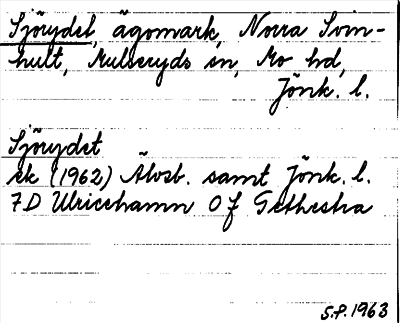 Sjörydet, ägomark, Norra Svin-
hult, Mulseryds sn, Mo hd,
Jönk. l.
Sjörydet
ek (1962) Älvsb. samt Jönk. l.
7D Ulricehamn 0f Grthestra
S.P. 1963